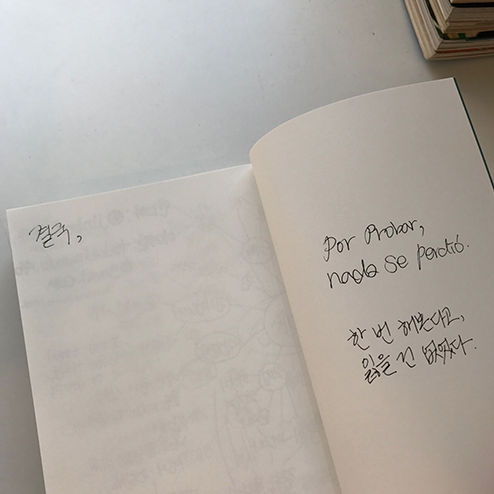 결국,
Por Probar,
nada se perdió.
한 번 해본다고,
잃을 건 없었다.